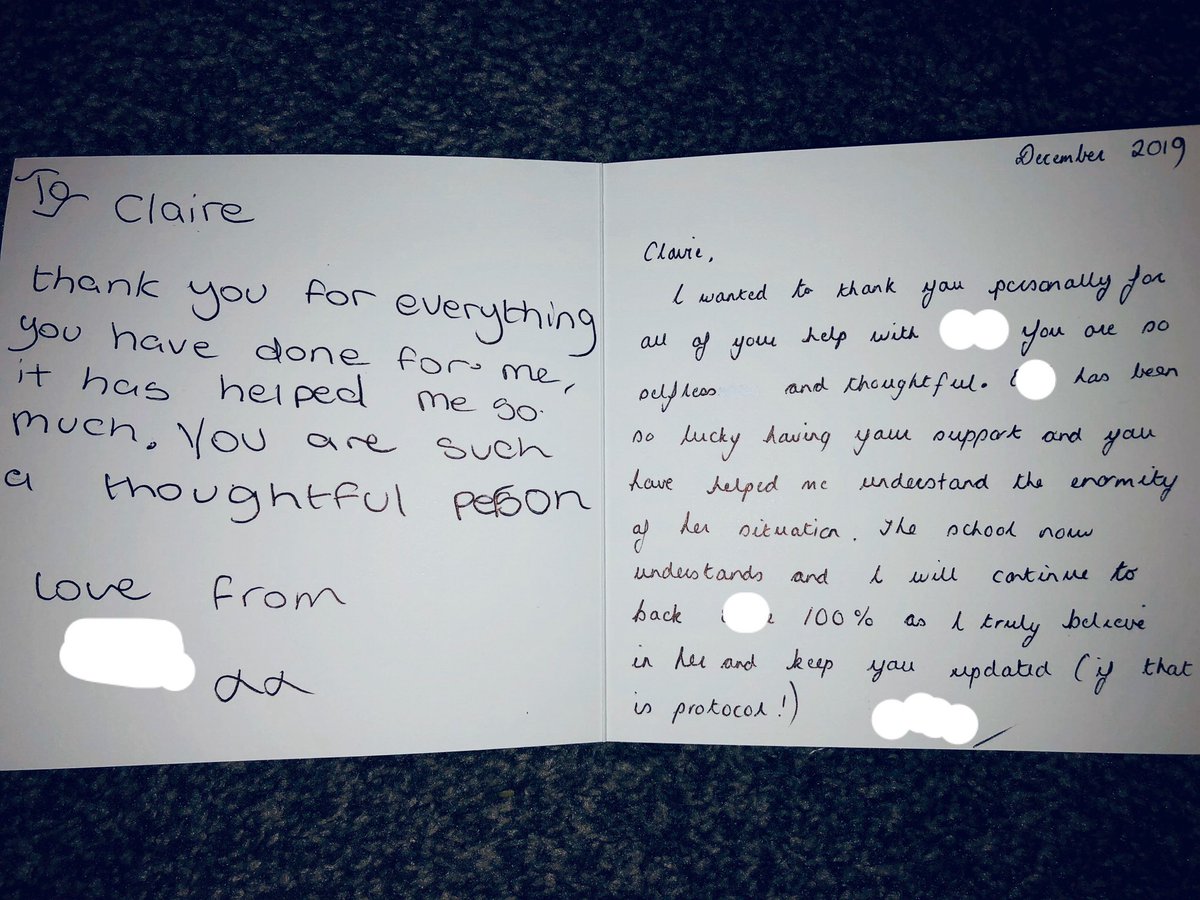 To Claire
thank you for everything
you have done for me,
it has helped me so
much. You are such
a thoughtful person
love from
xx
December 2019
Claire,
I wanted to thank you personally for
all of your help with You are so
selfless and thoughtful. has been
so lucky having your support and you
have helped me understand the enormity
of her situation. The school now
understands and I will continue to
back 100% as I truly believe
in her and keep you updated (if that
is protocol!)